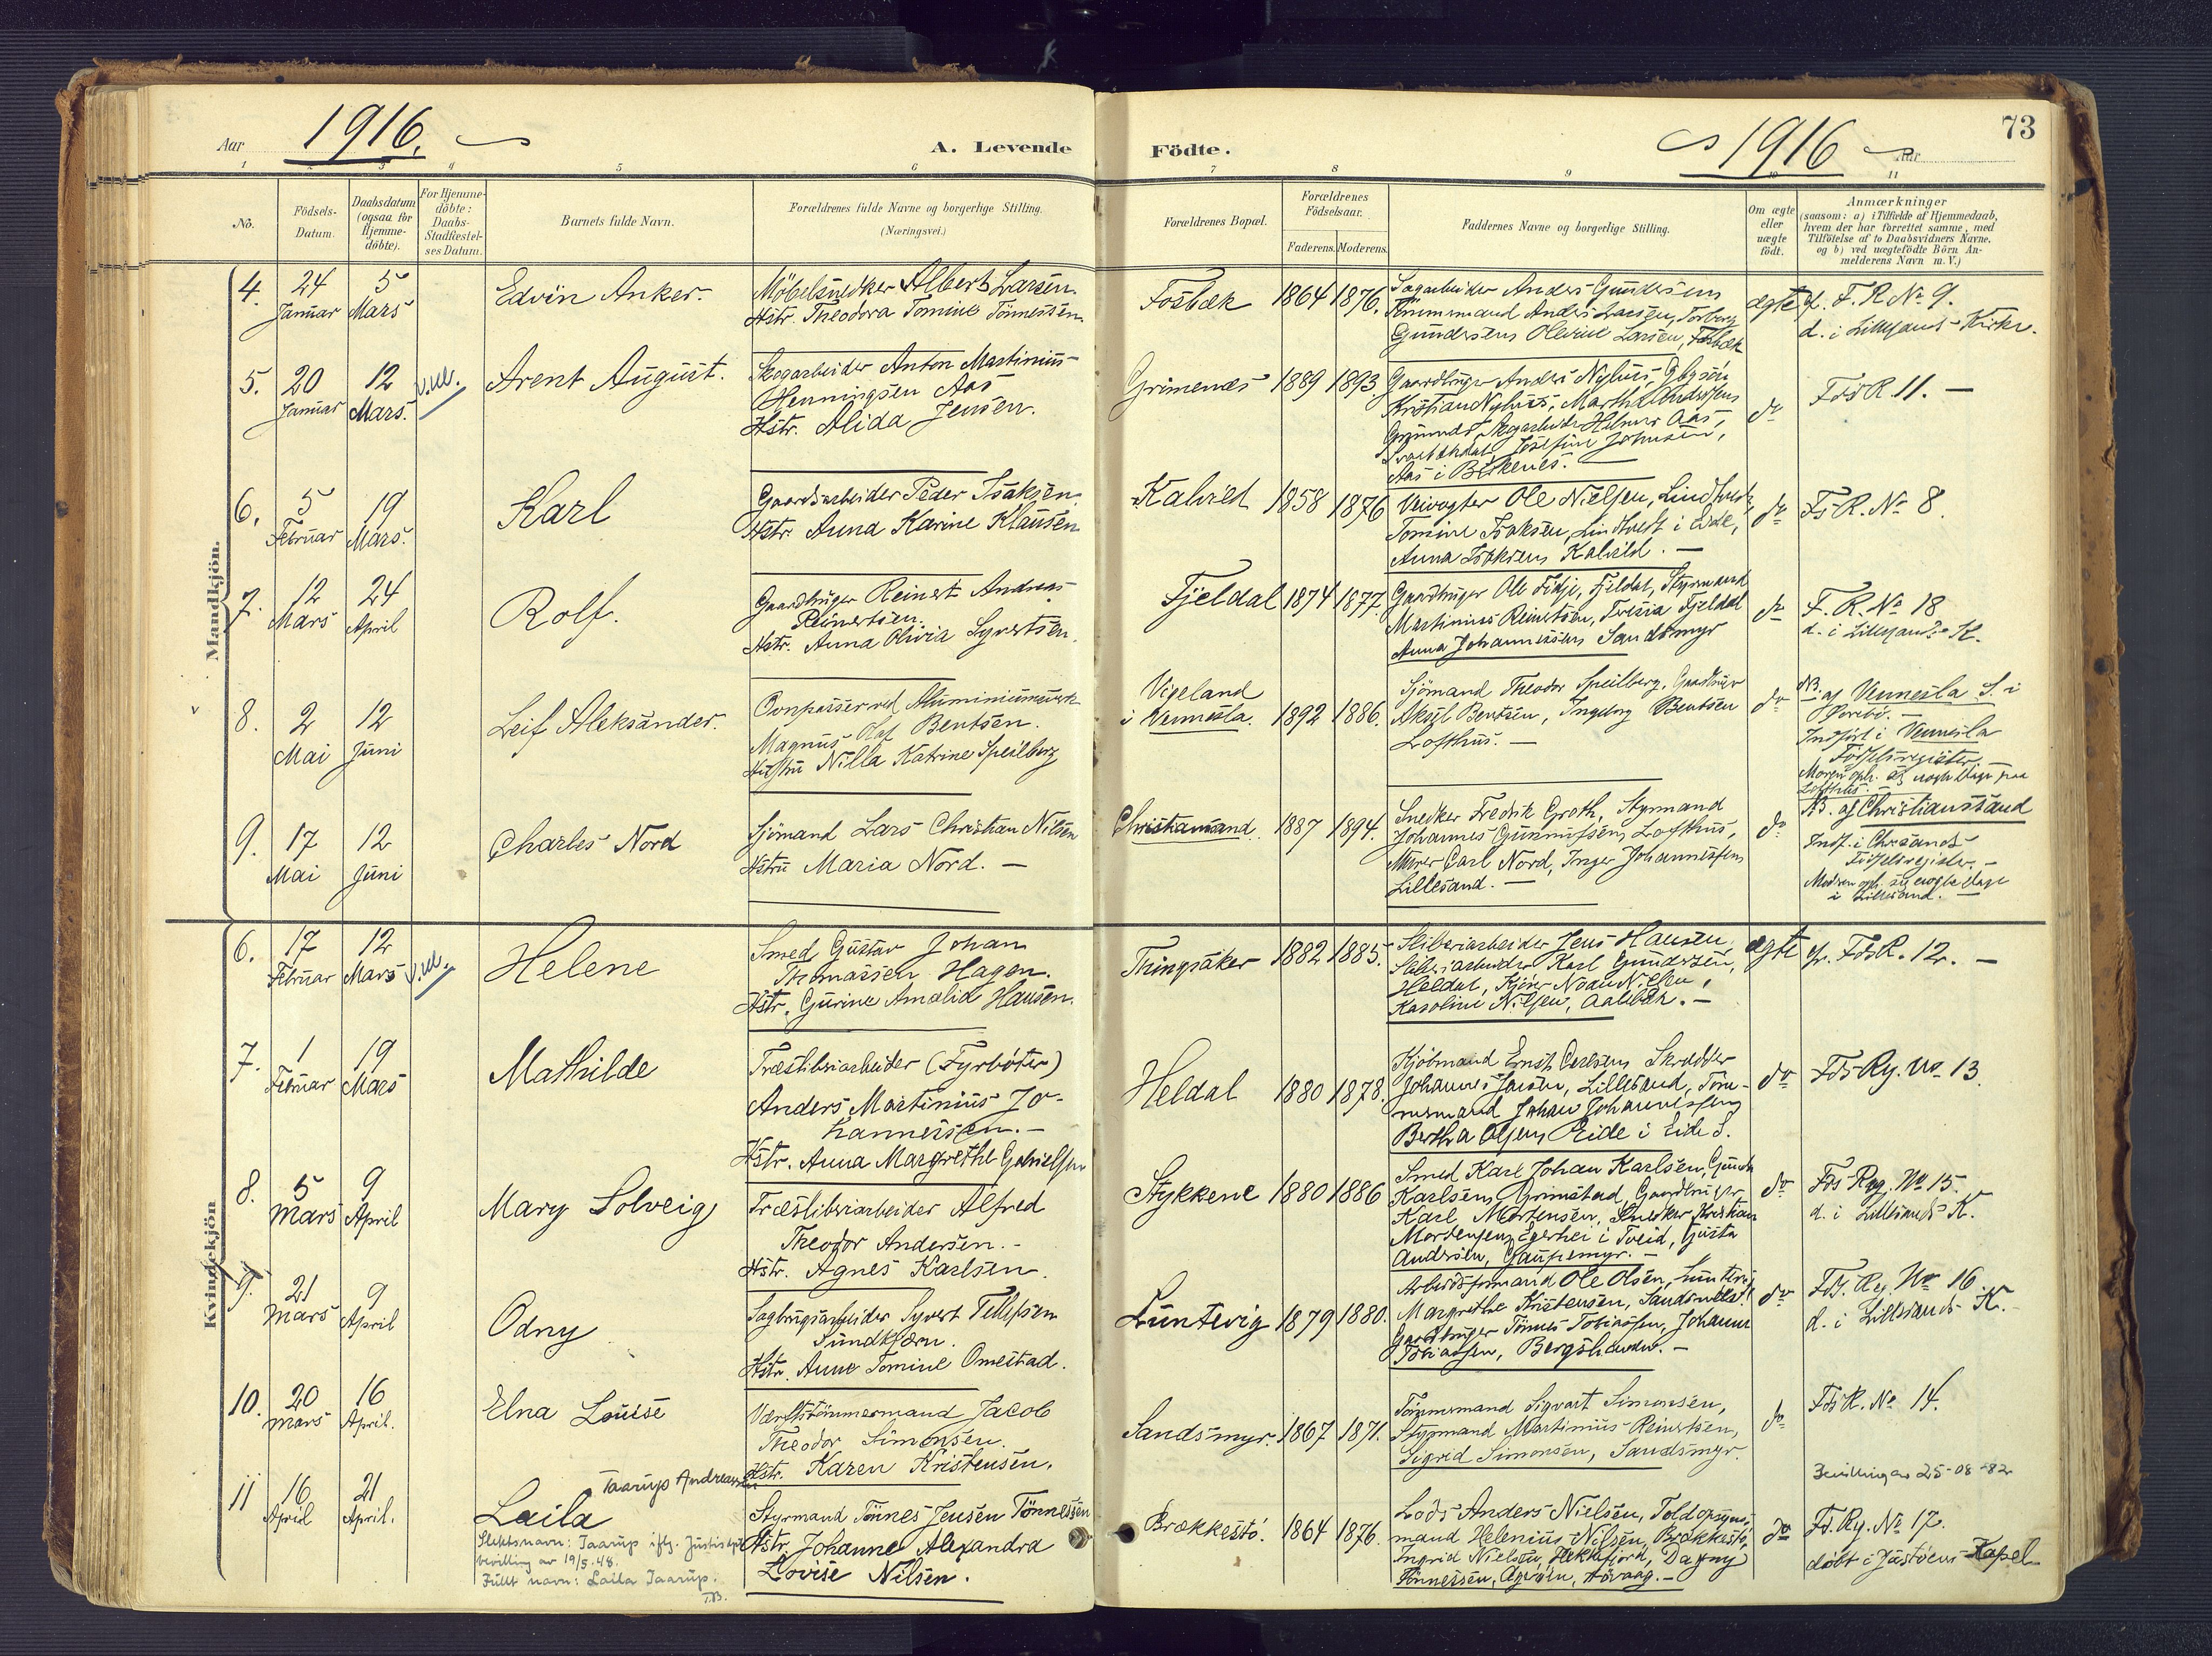 Aar 1916.
A. Levende Födte.
1916 Aar
73
1 2 3 4 5 6 7 8 9 10 11
No.
Födsels-Datum.
Daabsdatum (ogsaa for Hjemme-döbte).
For Hjemme-döbte: Daabs-Stadfæstel-ses Datum.
Barnets fulde Navn.
Forældrenes fulde Navne og borgerlige Stilling.
(Næringsvei.)
Forældrenes Bopæl.
Forældrenes Födselsaar.
Faderens. Moderens.
Faddernes Navne og borgerlige Stilling.
Om ægte eller uægte födt.
Anmærkninger
(saasom: a) i Tilfælde af Hjemmedaab, hvem der har forrettet samme, med Tilföielse af to Daabsvidners Navne, og b) ved uægtefödte Börn An-melderens Navn m. V.)
Mandkjön.
4. 24 Januar 5 Mars
Edvin Anker.
Möbelsnedker Albert Larsen
Hstr. Theodora Tomine Tönnessen.
Fosbæk 1864 1876.
Sagarbeider Anders Gundersens
Tömmermand Anders Larsen, Torborg
Gundersens Olevine Larsen, Fosbæk
ægte
F. R. No 9.
d. i Lillesands Kirke.
5. 20 Januar 12 Mars. v.w.
Arent August.
Skogarbeider Anton Martinius
Henningsen Aas
Hstr. Alida Jensen.
Grimenæs 1889 1893
Gaardbruger Anders Nyhus,
Kristian Nyhus, Martha
Skogarbeider Helmer Aas,
Josefine Johnsen,
Aas i Birkenes.
do
FdsR. 11. —
6. 5 Februar 19 Mars.
Karl
Gaardsarbeider Peder Isaksen
Hstr. Anna Karine Klausen
Kalvild 1858 1876
Veivogter Ole Nielsen,
Tomine Isaksen, i Eide,
Anna Isaksens Kalvild. —
do
FsR. No 8.
7. 12 Mars 24 April
Rolf.
Gaardbruger Reinert Andreas
Reinertsen.
Hstr. Anna Olivia Syvertsen.
Fjeldal 1874 1877.
Gaardbruger Ole Fidje, Fjeldal, Styrmand
Martinius Reinertsen, Tresia Fjeldal
Anna Johannessens Sandsmyr
do
F. R. No 18
d. i Lillesands K.
8. 2 Mai 12 Juni
Leif Aleksander.
Ovnpasser ved Aluminiumsverk
Magnus Olaf Bentsen.
Hustru Nilla Katrine Speilberg
Vigeland
i Vennesla. 1892 1886.
Sjömand Theodor Speilberg, Gaardbruger
Aksel Bentsen, Ingeborg Bentsen
Lofthus. —
do
NB. af Vennesla S. i
Øvrebö.
Indfört i Vennesla
Födselsregister.
Moren oph. sig nogle dage paa
Lofthus.
9. 17 Mai 12 Juni
Charles Nord
Sjömand Lars Christian Nilsen
Hstru Maria Nord. —
Christiansand. 1887 1894.
Snedker Fredrik Groth, Styrmand
Johannes Gunnufsen, Lofthus,
Murer Carl Nord, Inger Johannessens
Lillesand. —
do
NB. af Christianssand
Indf. i Chrsands
Födselsregister. —
Modren oph. sig nogle dage
i Lillesand. —
Kvindekjön
6. 17 Februar 12 Mars v.w.
Helene
Smed Gustav Johan
Thomassen Hagen.
Hstr. Gurine Amalia Hansen.
Tingsaker 1882 1885.
Sliberiarbeider Jens Hansen,
Sliberiarbeider Karl Gundersen,
Heldal,
Karoline Nilsen, Aalebæk. —
ægte
FdsR. 12. —
7. 1 Februar 19 Mars
Mathilde
Træsliberiarbeider (Fyrböter)
Anders Martinius Jo-
hannessen. —
Hstr. Anna Margrethe Gabrielsen
Heldal 1880 1878.
Kjöbmand Ernst Carlsens Skrædder
Johannes Jensen, Lillesand, Töm-
mermand Johan Johannessens
Bertha Olsens Eide i Eide S.
do
Fds Rg. No 13.
8. 5 Mars 9 April
Mary Solveig
Træsliberiarbeider Alfred
Theodor Andersen. -
Hstr. Agnes Karlsen.
Stykkene 1880 1886
Smed Karl Johan Karlsen, Gunda
Karlsens Grimstad, Gaardbruger
Karl Mortensen, Snedker Kristian
Mortensens Egerhei i Tveid, Gusta
Andersen, Gaupemyr. —
do
Fds Reg. No 15.
d. i Lillesands K.
9. 21 Mars 9 April
Odny
Sagbrugsarbeider Syvert Tellefsen
Sundtjörn.
Hstr. Anne Tomine Omestad.
Luntevig 1879 1880.
Arbeidsformand Ole Olsen,
Margrethe Kristensen,
Gaardbruger Tönnes Tobiassen, Johanne
Tobiassen, Bergshaven. —
do
Fds. Rg. No 16
d. i Lillesands K. -
10. 20 Mars 16 April.
Elna Louise
Værftstömmermand Jacob
Theodor Simonsen.
Hstr. Karen Kristensen.
Sandsmyr. 1867 1871.
Tömmermand Sigvart Simonsen,
Styrmand Martinius Reinertsen,
Sigrid Simonsen, Sandsmyr.
do
FdsR. No 14.
11 16 April 21 April.
Taarup Andreassen
Laila
Slektsnavn: Taarup iflg. Justisdpt
bevilling av 19/5.48.
Fullt navn: Laila Taarup.
T.B.
Styrmand Tönnes Jensen Tönnessen
Hstr. Johanne Alexandra
Lovise Nilsen.
Brækkestö. 1864 1876.
Lods Anders Nielsen, Toldopsyns-
mand Helenius Nilsen, Brækkestö,
Ingrid Nielsen, Dagny
Tönnessen, Agerøen, Høvaag. —
do
Bevillinger 25-08-82
Fd. Rg. No 17.
döbt i Justöens Kapel